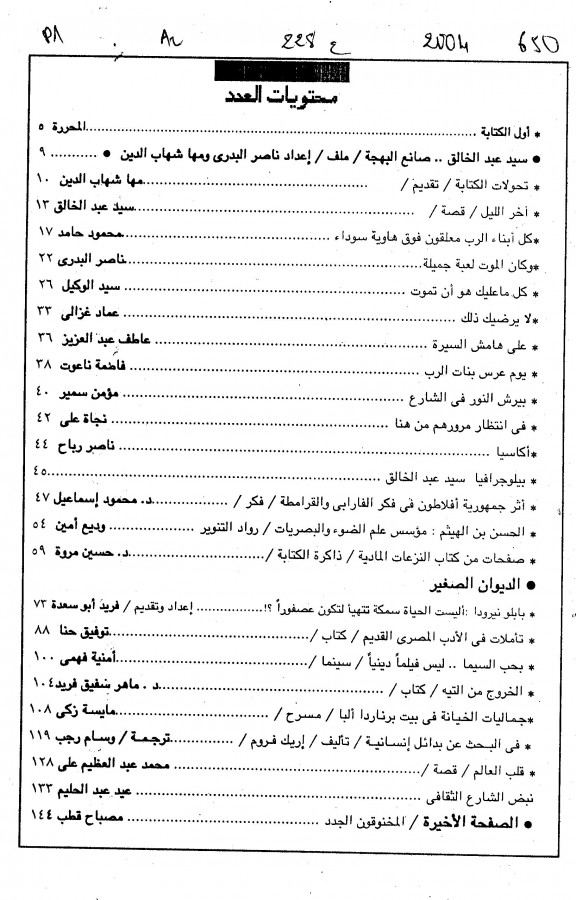 P1 Ar 228 ع 2004 650
محتويات العدد
* أول الكتابة ........ المحررة ٥
● سيد عبد الخالق .. صانع البهجة / ملف / إعداد ناصر البدرى ومها شهاب الدين ● ........ ٩
* تحولات الكتابة / تقديم / ........ مها شهاب الدين ١٠
* آخر الليل / قصة / ........ سيد عبد الخالق ١٣
*كل أبناء الرب معلقون فوق هاوية سوداء ........ محمود حامد ١٧
*وكان الموت لعبة جميلة ........ ناصر البدرى ٢٢
* كل ماعليك هو أن تموت ........ سيد الوكيل ٢٦
*لا يرضيك ذلك ........ عماد غزالى ٣٣
* على هامش السيرة ........ عاطف عبد العزيز ٣٦
* يوم عرس بنات الرب ........ فاطمة ناعوت ٣٨
* بيرش النور فى الشارع ........ مؤمن سمير ٤٠
* فى انتظار مرورهم من هنا ........ نجاة على ٤٢
*أكاسيا ........ ناصر رباح ٤٤
* بيلوجرافيا سيد عبد الخالق ........ ٤٥
* أثر جمهورية أفلاطون فى فكر الفارابى والقرامطة / فكر / ........ د. محمود إسماعيل ٤٧
* الحسن بن الهيثم : مؤسس علم الضوء والبصريات / رواد التنوير ........ وديع أمين ٥٤
* صفحات من كتاب النزعات المادية / ذاكرة الكتابة / ........ د. حسين مروة ٥٩
● الديوان الصغير
* بابلو نيرودا :أليست الحياة سمكة تتهيأ لتكون عصفوراً ؟! ........ إعداد وتقديم / فريد أبو سعدة ٧٣
* تأملات فى الأدب المصرى القديم / كتاب / ........ توفيق حنا ٨٨
* بحب السيما .. ليس فيلماً دينياً / سينما / ........ أمنية فهمى ١٠٠
* الخروج من التيه / كتاب / ........ د . ماهر شفيق فريد ١٠٤
*جماليات الخيانة فى بيت برناردا ألبا / مسرح / ........ مايسة زكى ١٠٨
* فى البحث عن بدائل إنسانية / تأليف / إريك فروم / ........ ترجمة / وسام رجب ١١٩
* قلب العالم / قصة / ........ محمد عبد العظيم على ١٢٨
نبض الشارع الثقافى ........ عيد عبد الحليم ١٣٣
● الصفحة الأخيرة / المخنوقون الجدد ........ مصباح قطب ١٤٤